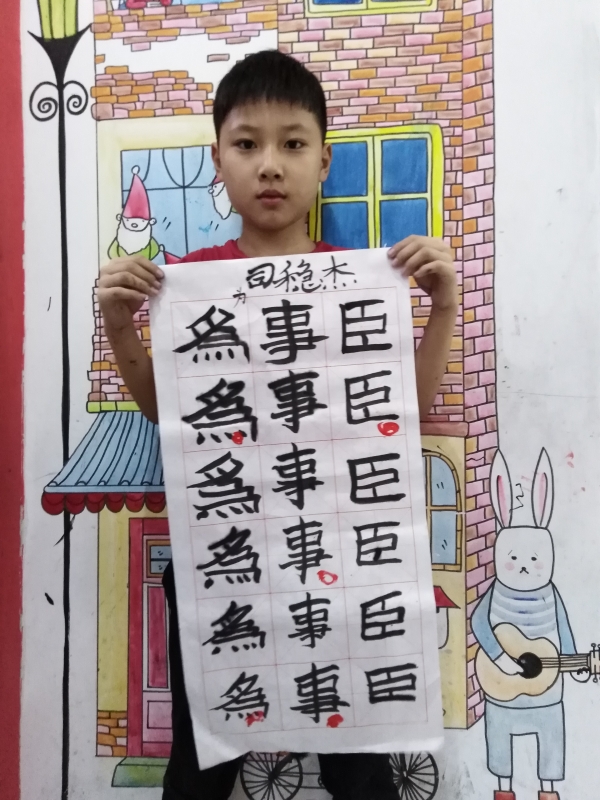 司稳杰
为
為事臣
為事臣
為事臣
為事臣
為事臣
為事臣